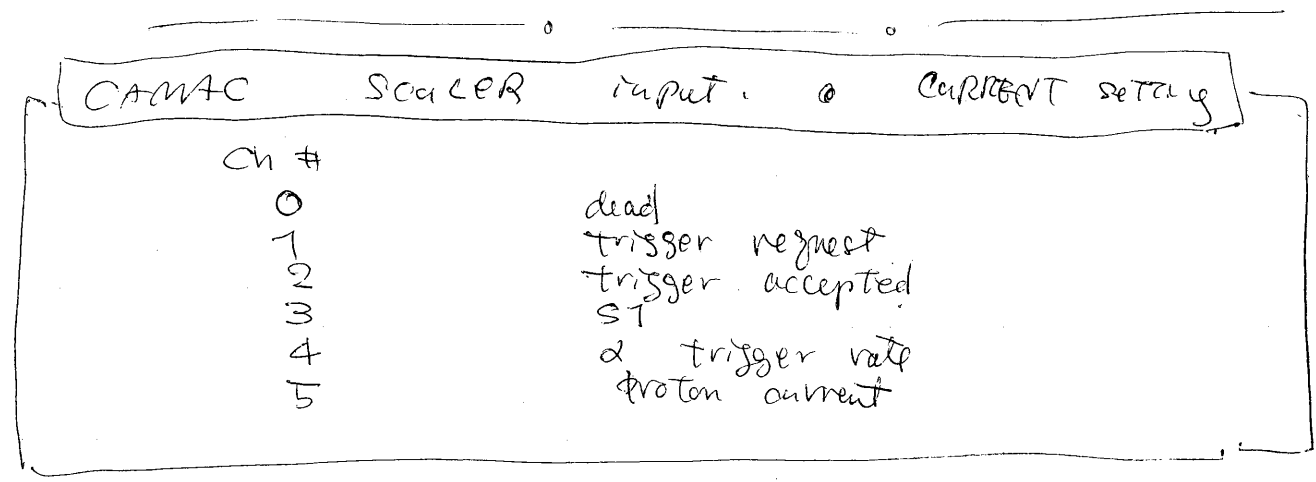 CAMAC SCALER input. o CURRENT SETTING
Ch #
0 dead
1 trigger request
2 trigger accepted
3 S1
4 α trigger rate
5 proton current